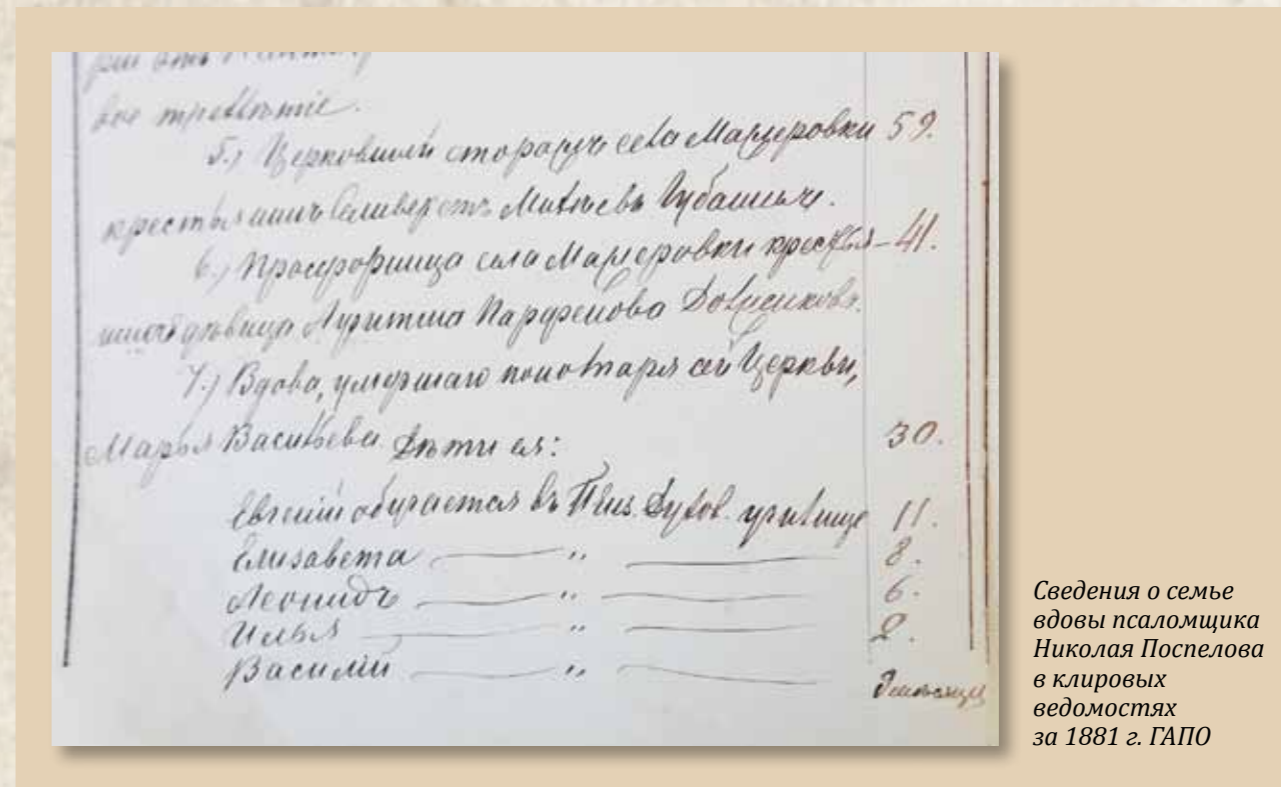 вое трехлѣтіе.
5.) Церковный сторожъ села Мачеровки 59.
крестьянинъ Селиверстъ Матвѣевъ
6.) Просфорница села Мачеровки крестья- 41.
дѣвица Парфенова
7.) Вдова, умершаго пономаря сей Церкви,
Марья Васильева. Дѣти ея: 30.
Евгеній обучается въ Пенз. Духов. училище 11.
Елизавета — „ — 8.
Леонидъ — „ — 6.
Илья — „ — 2.
Василій — „ —
Сведения о семье
вдовы псаломщика
Николая Поспелова
в клировых
ведомостях
за 1881 г. ГАПО